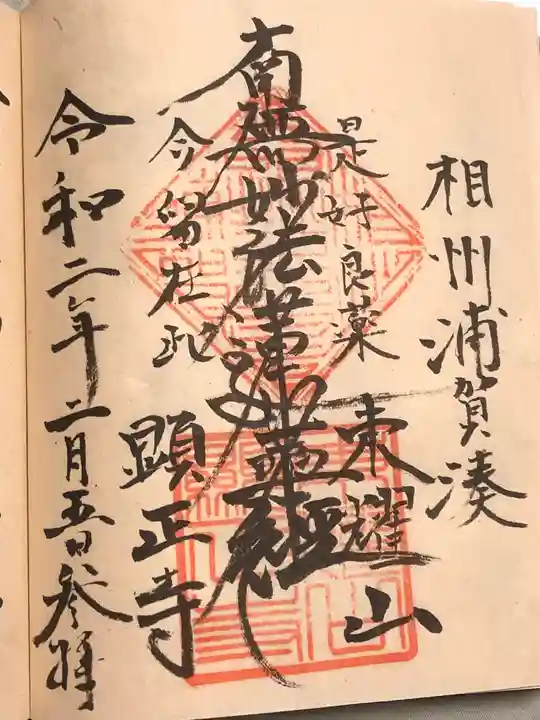 相州浦賀湊
東耀山
是好良薬
南無妙法蓮華経
今留在此
顕正寺
令和二年二月吉日参拝